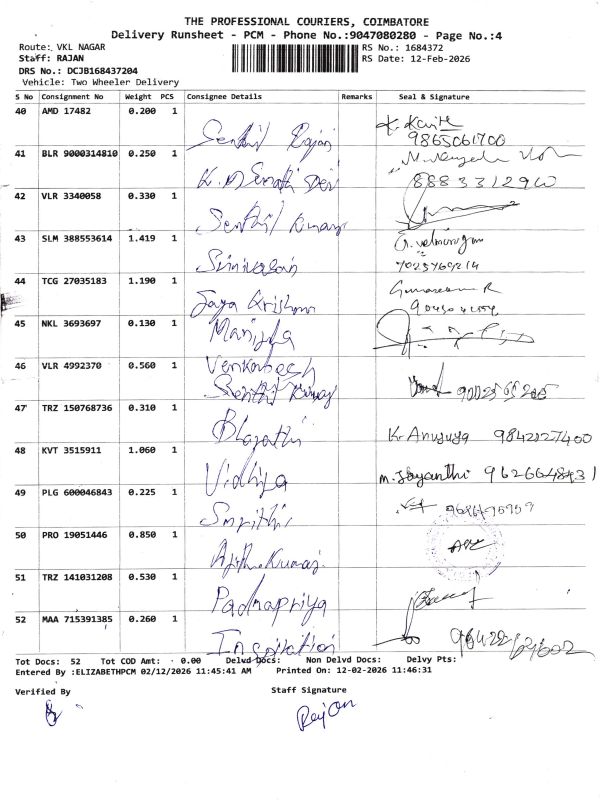 THE PROFESSIONAL COURIERS, COIMBATORE
Delivery Runsheet - PCM - Phone No.:9047080280 - Page No.:4
Route: VKL NAGAR RS No.: 1684372
Staff: RAJAN RS Date: 12-Feb-2026
DRS No.: DCJB168437204
Vehicle: Two Wheeler Delivery
S No Consignment No Weight PCS Consignee Details Remarks Seal & Signature
40 AMD 17482 0.200 1
Senthil Rajan
9865061700
41 BLR 9000314810 0.250 1
42 VLR 3340058 0.330 1
Senthil Kumar
43 SLM 388553614 1.419 1
Srinivasan
44 TCG 27035183 1.190 1
Jaya Krishna
45 NKL 3693697 0.130 1
Manjula
46 VLR 4992370 0.560 1
Venkatesh
Senthil Kumar
47 TRZ 150768736 0.310 1
Bharathi K. Anusuya 9842127400
48 KVT 3515911 1.060 1
Vidhya M. Jayanthi
49 PLG 600046843 0.225 1
Smrithi
50 PRO 19051446 0.850 1
Ajith Kumar
51 TRZ 141031208 0.530 1
Padmapriya
52 MAA 715391385 0.260 1
Inspiration
Tot Docs: 52 Tot COD Amt: 0.00 Delvd Docs: Non Delvd Docs: Delvy Pts:
Entered By :ELIZABETHPCM 02/12/2026 11:45:41 AM Printed On: 12-02-2026 11:46:31
Verified By Staff Signature
Rajan